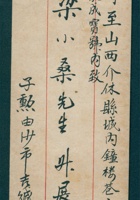 至山西介休縣城內鐘樓巷
成寶號內致
梁小桑先生 升展
子勳由沙市